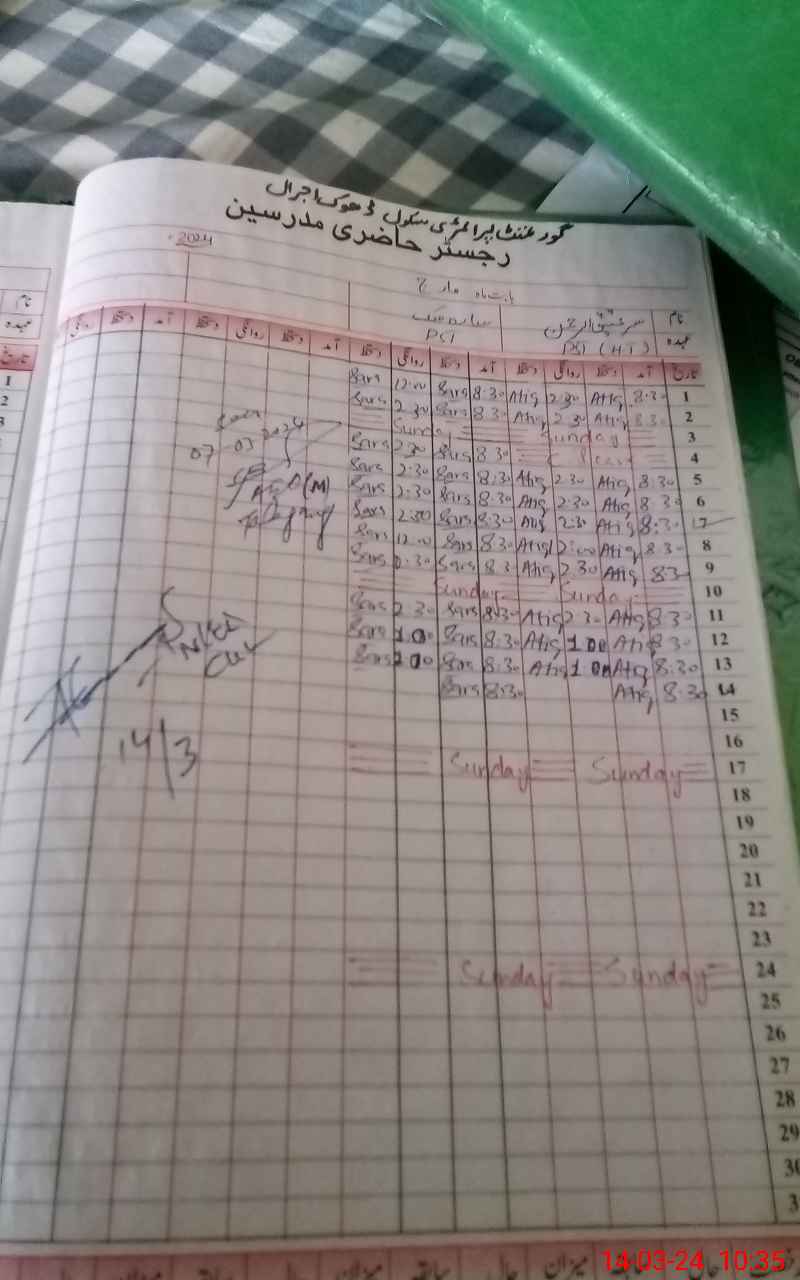 گورنمنٹ پرائمری سکول ڈھوک اجرال
رجسٹر حاضری مدرسین
2024
بابت ماہ مارچ
نام
عہدہ PST (H.T) PST
تاریخ آمد دستخط روانگی دستخط آمد دستخط روانگی دستخط آمد دستخط روانگی دستخط آمد دستخط روانگی
1 8:30 Atiq 2:30 Atiq 8:30 Sars 12:00 Sars
2 8:30 Atiq 2:30 Atiq 8:30 Sars 2:30 Sars
3 Sunday Sunday
4 8:30 Sars 2:30 Sars
5 8:30 Atiq 2:30 Atiq 8:30 Sars 2:30 Sars
6 8:30 Atiq 2:30 Atiq 8:30 Sars 2:30 Sars
7 8:30 Atiq 2:30 Atiq 8:30 Sars 2:30 Sars
8 8:30 Atiq 12:00 Atiq 8:30 Sars 12:00 Sars
9 8:30 Atiq 2:30 Atiq 8:30 Sars 2:30 Sars
10 Sunday Sunday
11 8:30 Atiq 2:30 Atiq 8:30 Sars 2:30 Sars
12 8:30 Atiq 1:00 Atiq 8:30 Sars 1:00 Sars
13 8:30 Atiq 1:00 Atiq 8:30 Sars 1:00 Sars
14 8:30 Atiq 8:30 Sars
15
16
17 Sunday Sunday
18
19
20
21
22
23
24 Sunday Sunday
25
26
27
28
29
30
3
07 03 2024
AEO (M)
14/3
نام
عہدہ
تاریخ
1
2
3
14-03-24 10:35